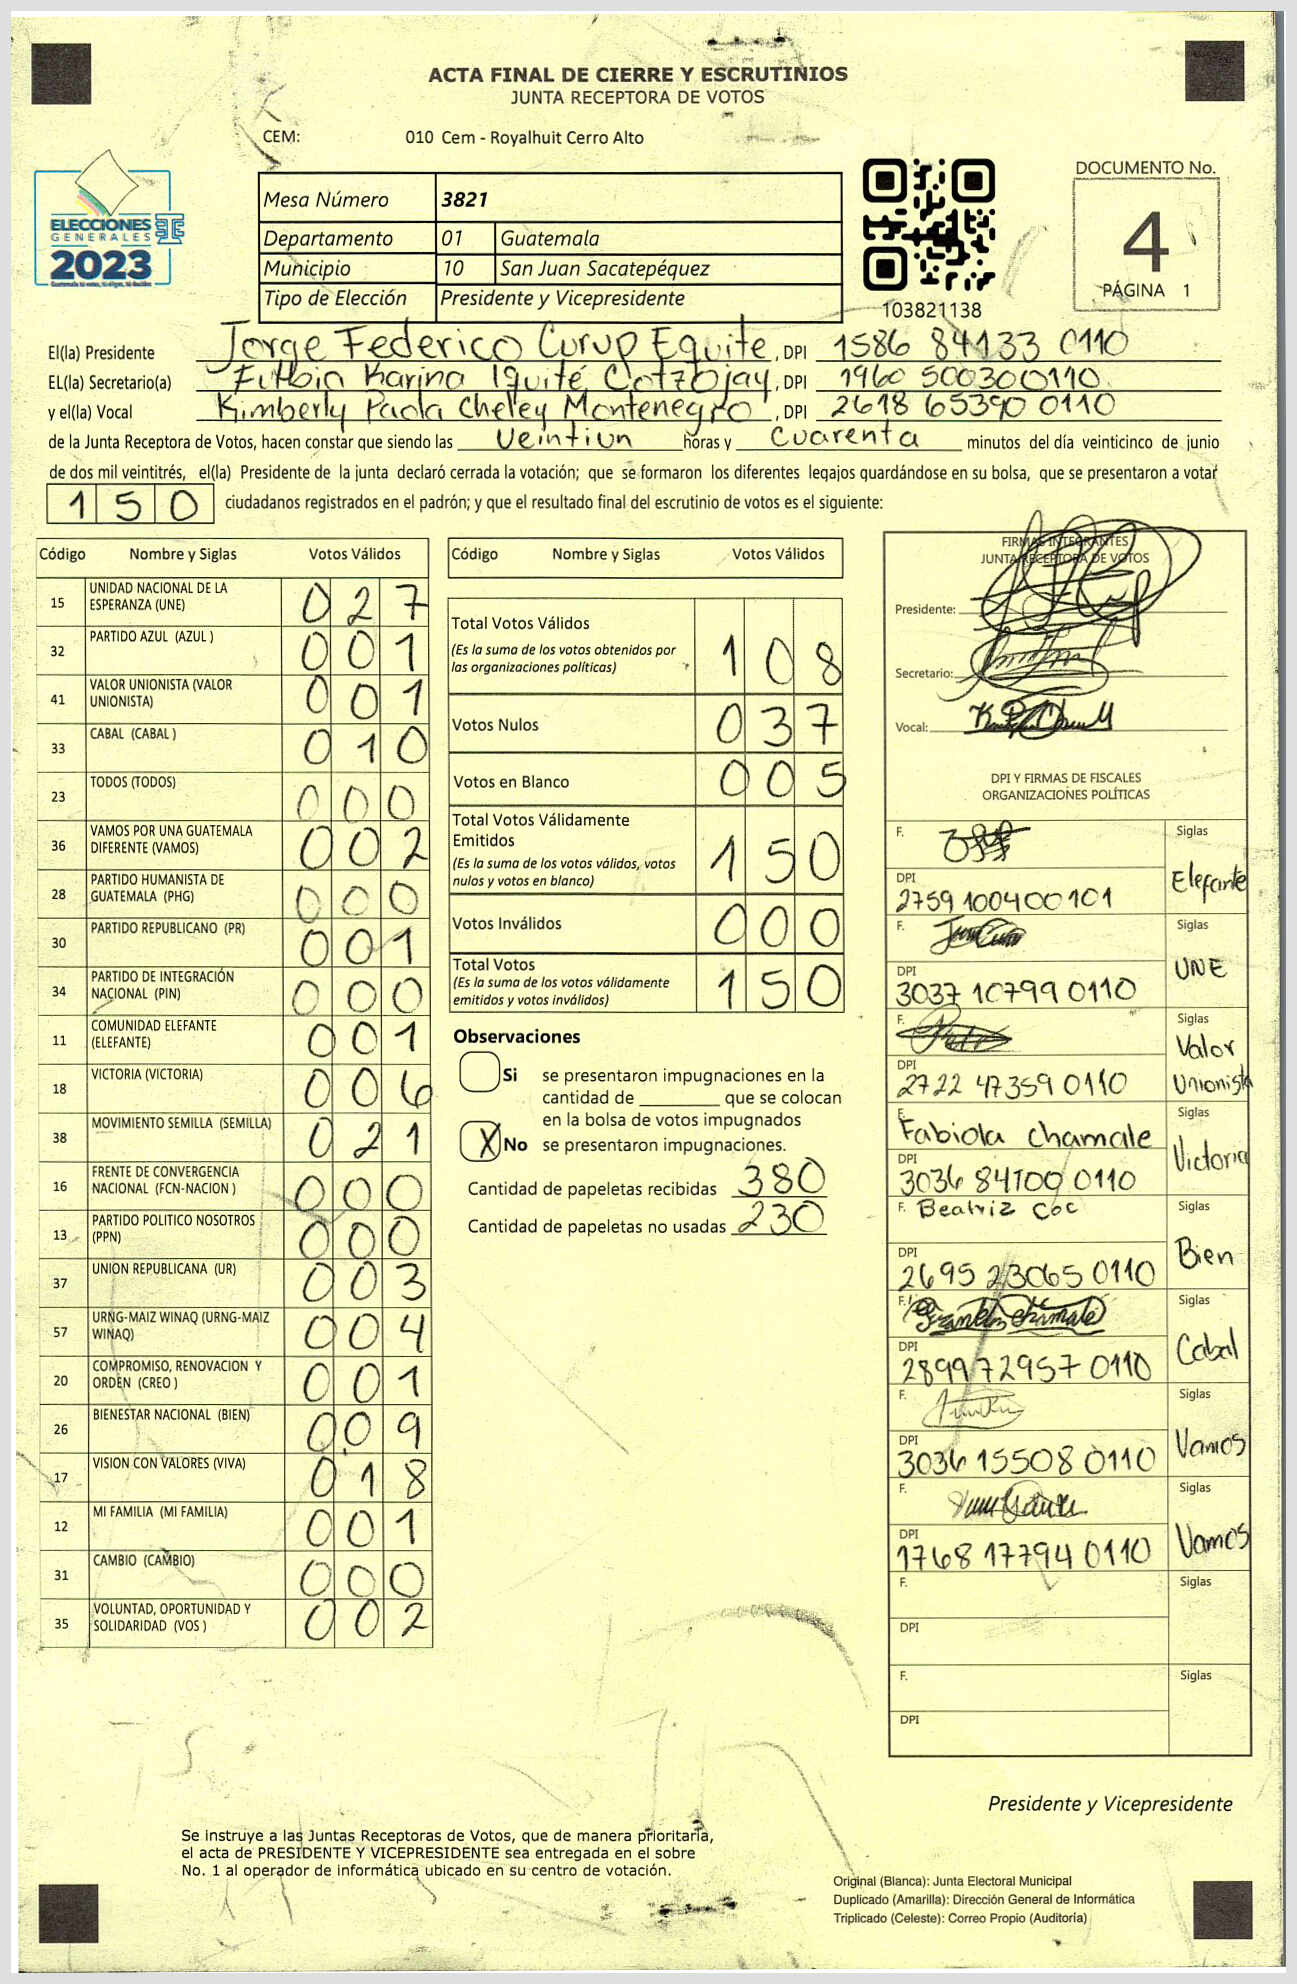 ACTA FINAL DE CIERRE Y ESCRUTINIOS
JUNTA RECEPTORA DE VOTOS
CEM: 010 Cem - Royalhuit Cerro Alto
ELECCIONES
GENERALES
2023
Mesa Número 3821
Departamento 01 Guatemala
Municipio 10 San Juan Sacatepéquez
Tipo de Elección Presidente y Vicepresidente
103821138
DOCUMENTO No.
4
PÁGINA 1
El(la) Presidente Jorge Federico Curup Equite, DPI 1586 84133 0110
EL(la) Secretario(a) Karina Iquité Cotzojay, DPI 1960 50030 0110
y el(la) Vocal Kimberly Paola Cheley Montenegro, DPI 2618 65390 0110
de la Junta Receptora de Votos, hacen constar que siendo las Veintiun horas y Cuarenta minutos del día veinticinco de junio
de dos mil veintitrés, el(la) Presidente de la junta declaró cerrada la votación; que se formaron los diferentes legajos guardándose en su bolsa, que se presentaron a votar
150 ciudadanos registrados en el padrón; y que el resultado final del escrutinio de votos es el siguiente:
Código Nombre y Siglas Votos Válidos
15 UNIDAD NACIONAL DE LA ESPERANZA (UNE) 027
32 PARTIDO AZUL (AZUL ) 001
41 VALOR UNIONISTA (VALOR UNIONISTA) 001
33 CABAL (CABAL ) 010
23 TODOS (TODOS) 000
36 VAMOS POR UNA GUATEMALA DIFERENTE (VAMOS) 002
28 PARTIDO HUMANISTA DE GUATEMALA (PHG) 000
30 PARTIDO REPUBLICANO (PR) 001
34 PARTIDO DE INTEGRACIÓN NACIONAL (PIN) 000
11 COMUNIDAD ELEFANTE (ELEFANTE) 001
18 VICTORIA (VICTORIA) 006
38 MOVIMIENTO SEMILLA (SEMILLA) 021
16 FRENTE DE CONVERGENCIA NACIONAL (FCN-NACION ) 000
13 PARTIDO POLITICO NOSOTROS (PPN) 000
37 UNION REPUBLICANA (UR) 003
57 URNG-MAIZ WINAQ (URNG-MAIZ WINAQ) 004
20 COMPROMISO, RENOVACION Y ORDEN (CREO ) 001
26 BIENESTAR NACIONAL (BIEN) 009
17 VISION CON VALORES (VIVA) 018
12 MI FAMILIA (MI FAMILIA) 001
31 CAMBIO (CAMBIO) 000
35 VOLUNTAD, OPORTUNIDAD Y SOLIDARIDAD (VOS ) 002
Código Nombre y Siglas Votos Válidos
Total Votos Válidos 108
(Es la suma de los votos obtenidos por
las organizaciones políticas)
Votos Nulos 037
Votos en Blanco 005
Total Votos Válidamente
Emitidos 150
(Es la suma de los votos válidos, votos
nulos y votos en blanco)
Votos Inválidos 000
Total Votos 150
(Es la suma de los votos válidamente
emitidos y votos inválidos)
Observaciones
Si se presentaron impugnaciones en la
cantidad de ________ que se colocan
en la bolsa de votos impugnados
X No se presentaron impugnaciones.
Cantidad de papeletas recibidas 380
Cantidad de papeletas no usadas 230
FIRMAS INTEGRANTES
JUNTA RECEPTORA DE VOTOS
Presidente:
Secretario:
Vocal:
DPI Y FIRMAS DE FISCALES
ORGANIZACIONES POLÍTICAS
F. Siglas
Elefante
DPI
2759 10040 0101
F. Siglas
UNE
DPI
3037 10799 0110
F. Siglas
Valor
Unionista
DPI
2722 47359 0110
F. Siglas
Fabiola Chamale
Victoria
DPI
3036 84100 0110
F. Beatriz Coc Siglas
Bien
DPI
2695 23065 0110
F. Siglas
Franklin Chamalé
Cabal
DPI
2899 72957 0110
F. Siglas
Vamos
DPI
3036 15508 0110
F. Siglas
Vamos
DPI
1768 17794 0110
F. Siglas
DPI
F. Siglas
DPI
Presidente y Vicepresidente
Se instruye a las Juntas Receptoras de Votos, que de manera prioritaria,
el acta de PRESIDENTE Y VICEPRESIDENTE sea entregada en el sobre
No. 1 al operador de informática ubicado en su centro de votación.
Original (Blanca): Junta Electoral Municipal
Duplicado (Amarilla): Dirección General de Informática
Triplicado (Celeste): Correo Propio (Auditoría)